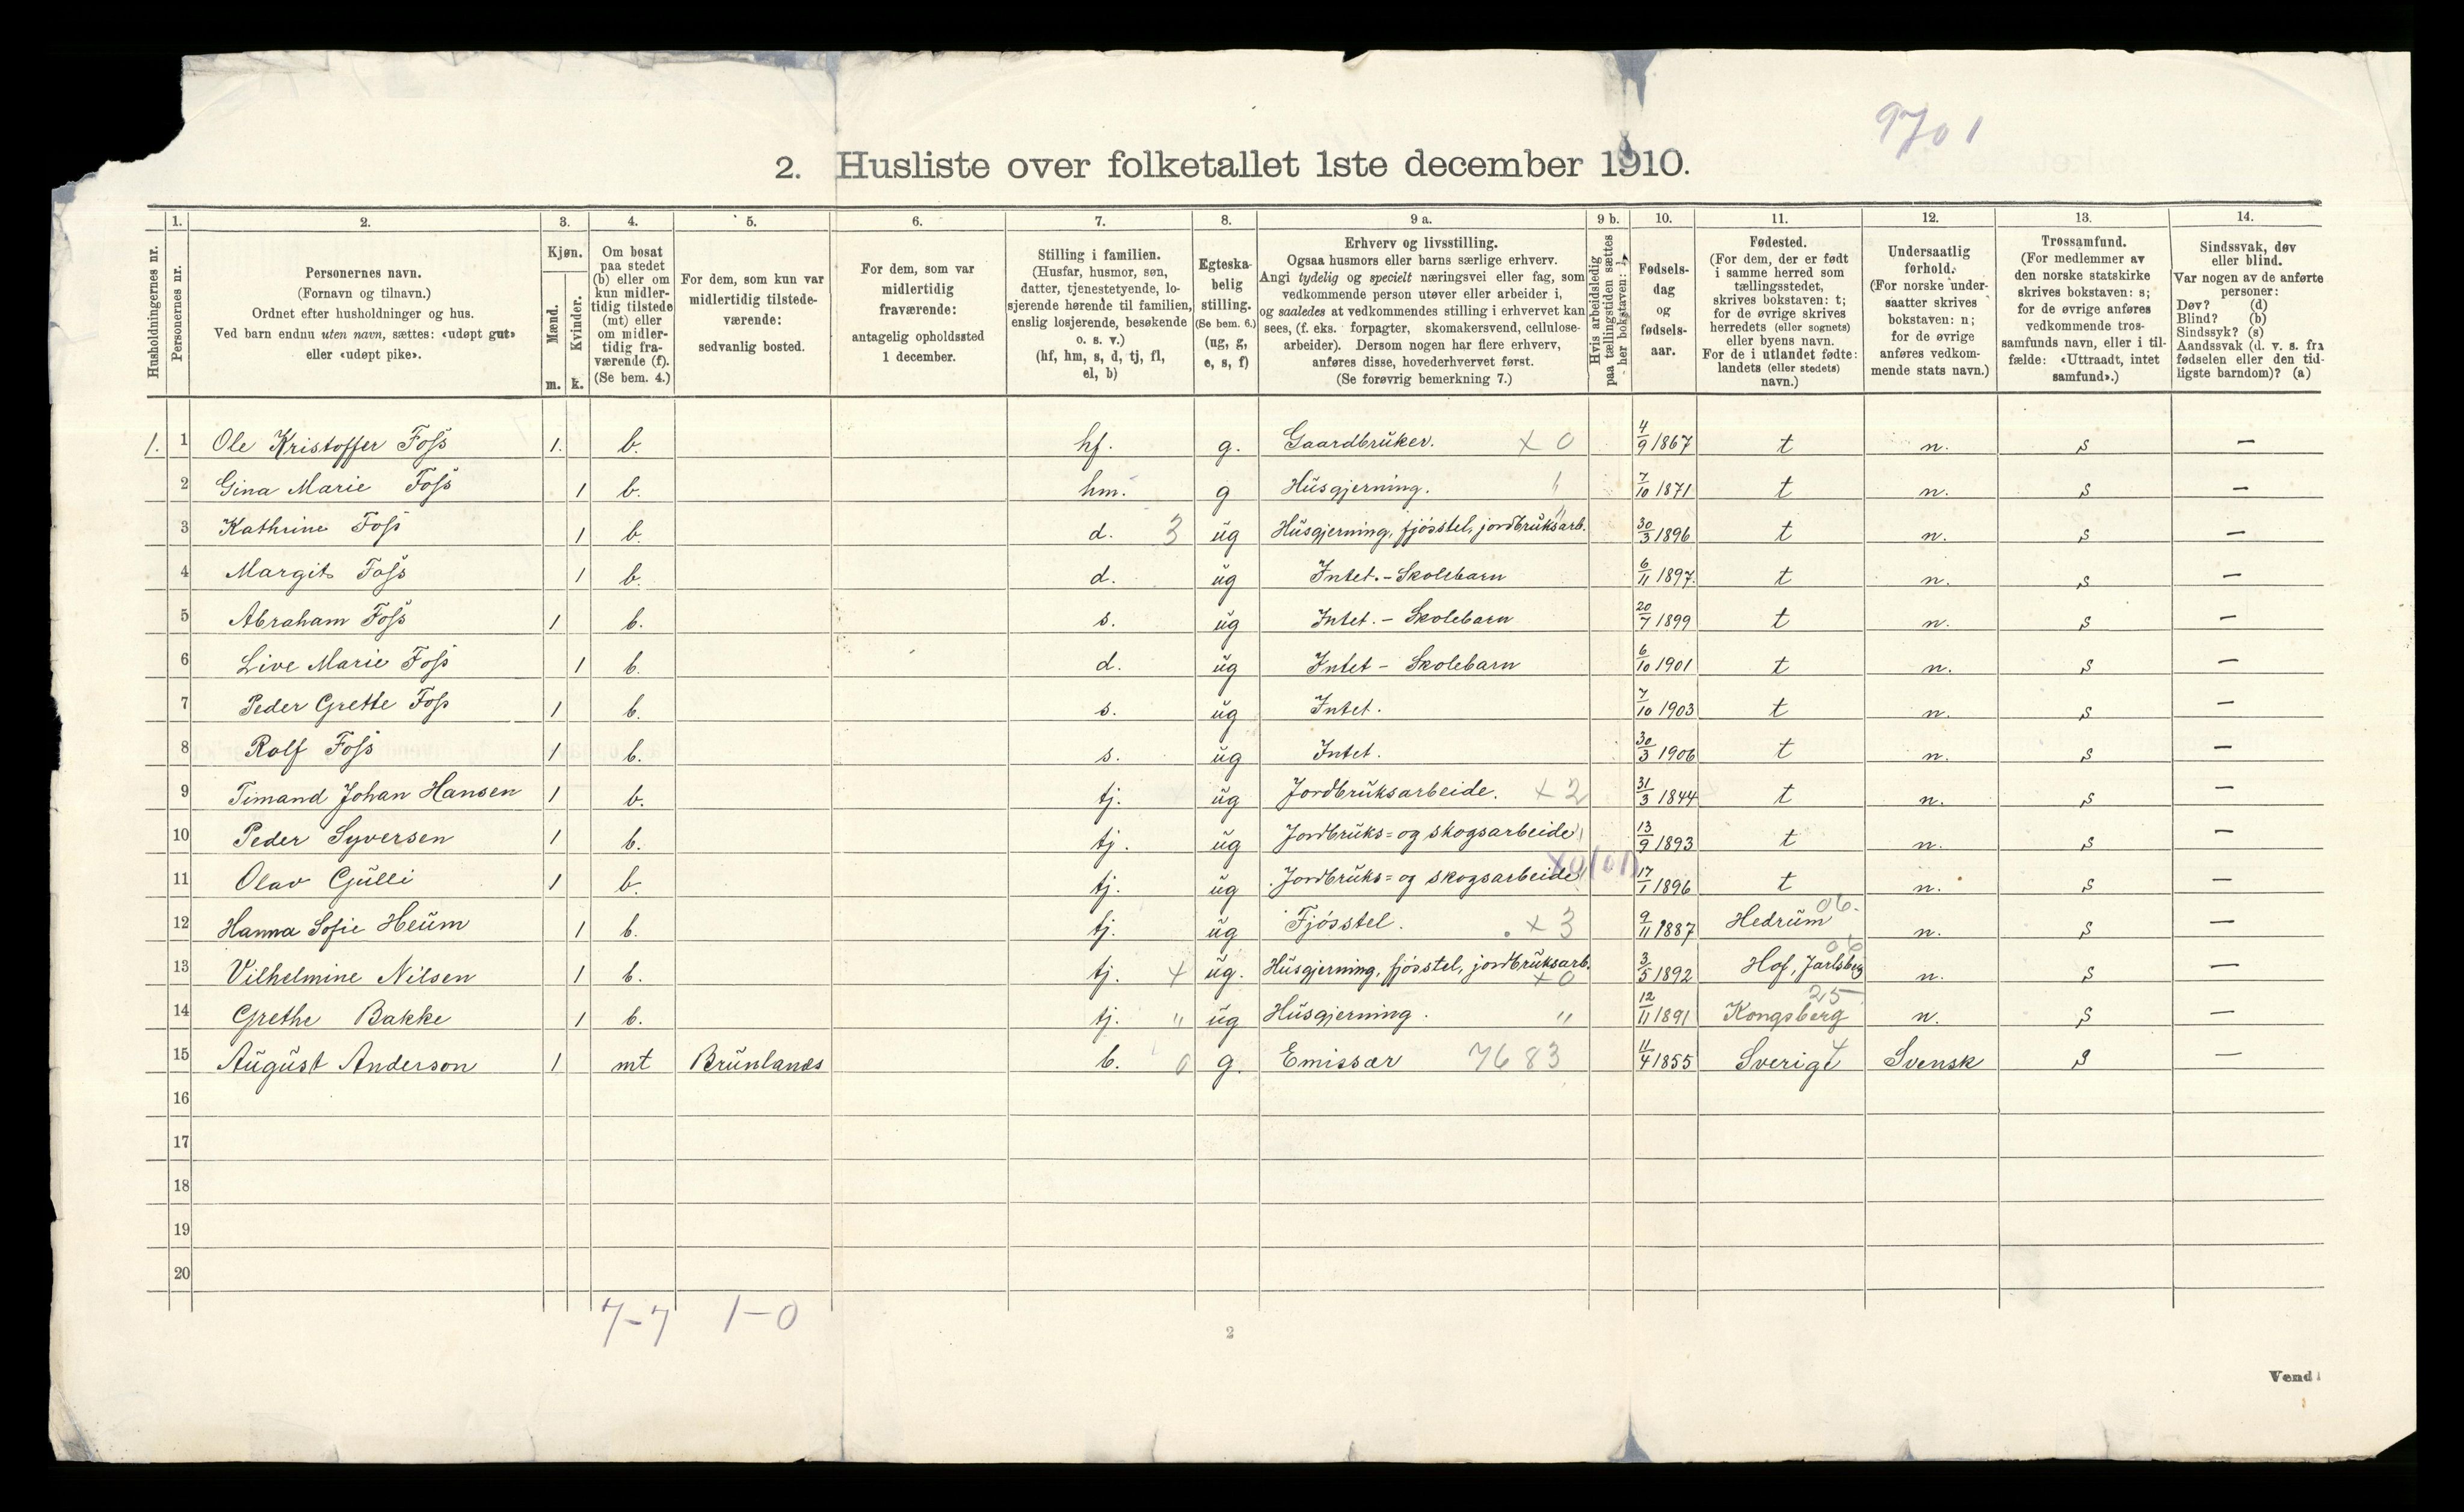 9701
2. Husliste over folketallet 1ste december 1910.
1. 2. 3. 4. 5. 6. 7. 8. 9 a. 9 b. 10. 11. 12. 13. 14.
Husholdningernes nr.
Personernes nr.
Personernes navn.
(Fornavn og tilnavn.)
Ordnet efter husholdninger og hus.
Ved barn endnu uten navn, sættes: «udøpt gut»
eller «udøpt pike».
Kjøn.
Mænd.
Kvinder.
m. k.
Om bosat
paa stedet
(b) eller om
kun midler-
tidig tilstede
(mt) eller
om midler-
tidig fra-
værende (f).
(Se bem. 4.)
For dem, som kun var
midlertidig tilstede-
værende:
sedvanlig bosted.
For dem, som var
midlertidig
fraværende:
antagelig opholdssted
1 december.
Stilling i familien.
(Husfar, husmor, søn,
datter, tjenestetyende, lo-
sjerende hørende til familien,
enslig losjerende, besøkende
o. s. v.)
(hf, hm, s, d, tj, fl,
el, b)
Egteska-
belig
stilling.
(Se bem. 6.)
(ug, g,
e, s, f)
Erhverv og livsstilling.
Ogsaa husmors eller barns særlige erhverv.
Angi tydelig og specielt næringsvei eller fag, som
vedkommende person utøver eller arbeider i,
og saaledes at vedkommendes stilling i erhvervet kan
sees, (f. eks. forpagter, skomakersvend, cellulose-
arbeider). Dersom nogen har flere erhverv,
anføres disse, hovederhvervet først.
(Se forøvrig bemerkning 7.)
Hvis arbeidsledig
paa tællingstiden sættes
her bokstaven: l.
Fødsels-
dag
og
fødsels-
aar.
Fødested.
(For dem, der er født
i samme herred som
tællingsstedet,
skrives bokstaven: t;
for de øvrige skrives
herredets (eller sognets)
eller byens navn.
For de i utlandet fødte:
landets (eller stedets)
navn.)
Undersaatlig
forhold.
(For norske under-
saatter skrives
bokstaven: n;
for de øvrige
anføres vedkom-
mende stats navn.)
Trossamfund.
(For medlemmer av
den norske statskirke
skrives bokstaven: s;
for de øvrige anføres
vedkommende tros-
samfunds navn, eller i til-
fælde: «Uttraadt, intet
samfund».)
Sindssvak, døv
eller blind.
Var nogen av de anførte
personer:
Døv? (d)
Blind? (b)
Sindssyk? (s)
Aandssvak (d. v. s. fra
fødselen eller den tid-
ligste barndom)? (a)
1. 1 Ole Kristoffer Foss 1. b. hf. g. Gaardbruker. x 0 4/9 1867 t n. s —
2 Gina Marie Foss 1 b. hm. g Husgjerning. " 7/10 1871 t n. s —
3 Kathrine Foss 1 b. d. 3 ug Husgjerning, fjósstel, jordbruksarb. " 30/3 1896 t n. s —
4 Margit Foss 1 b. d. ug Intet. - Skolebarn 6/11 1897. t n. s —
5 Abraham Foss 1 b. s. ug Intet. - Skolebarn 20/7 1899 t n. s —
6 Live Marie Foss 1 b. d. ug Intet - Skolebarn 6/10 1901 t n. s —
7 Peder Grette Foss 1 b. s. ug Intet. 7/10 1903 t n. s —
8 Rolf Foss 1 b. s. ug Intet. 30/3 1906 t n. s —
9 Timand Johan Hansen 1 b. tj. ug Jordbruksarbeide. x 2 31/3 1844 t n. s —
10 Peder Syversen 1 b. tj. ug Jordbruks= og skogsarbeide 13/9 1893 t n. s —
11 Olav Gulli 1 b. tj. ug Jordbruks= og skogsarbeide 17/1 1896 t n. s —
12 Hanna Sofie Heum 1 b. tj. ug Fjósstel. x 3 9/11 1887 Hedrum 06. n. s —
13 Vilhelmine Nilsen 1 b. tj. x ug. Husgjerning, fjósstel, jordbruksarb. x 0 3/5 1892 Hof, Jarlsberg 06 n. s —
14 Grethe Bakke 1 b. tj. " ug Husgjerning. " 12/11 1891 Kongsberg 25 n. s —
15 August Anderson 1 mt Brunlanes b. 0 g. Emissær 7683 11/4 1855 Sverige 4 Svensk s —
16
17
18
19
20
7-7 1-0
2
Vend!